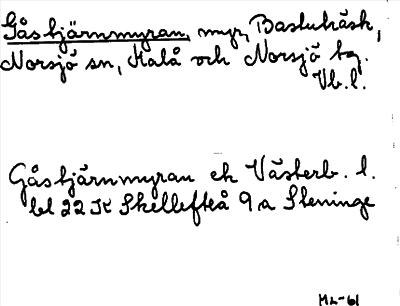 Gåstjärnmyran, myr, Bastuträsk,
Norsjö sn, Malå och Norsjö tg.
Vb.l.
Gåstjärnmyran ek Västerb. l.
bl 22 K Skellefteå 9 a Steninge
ML-61